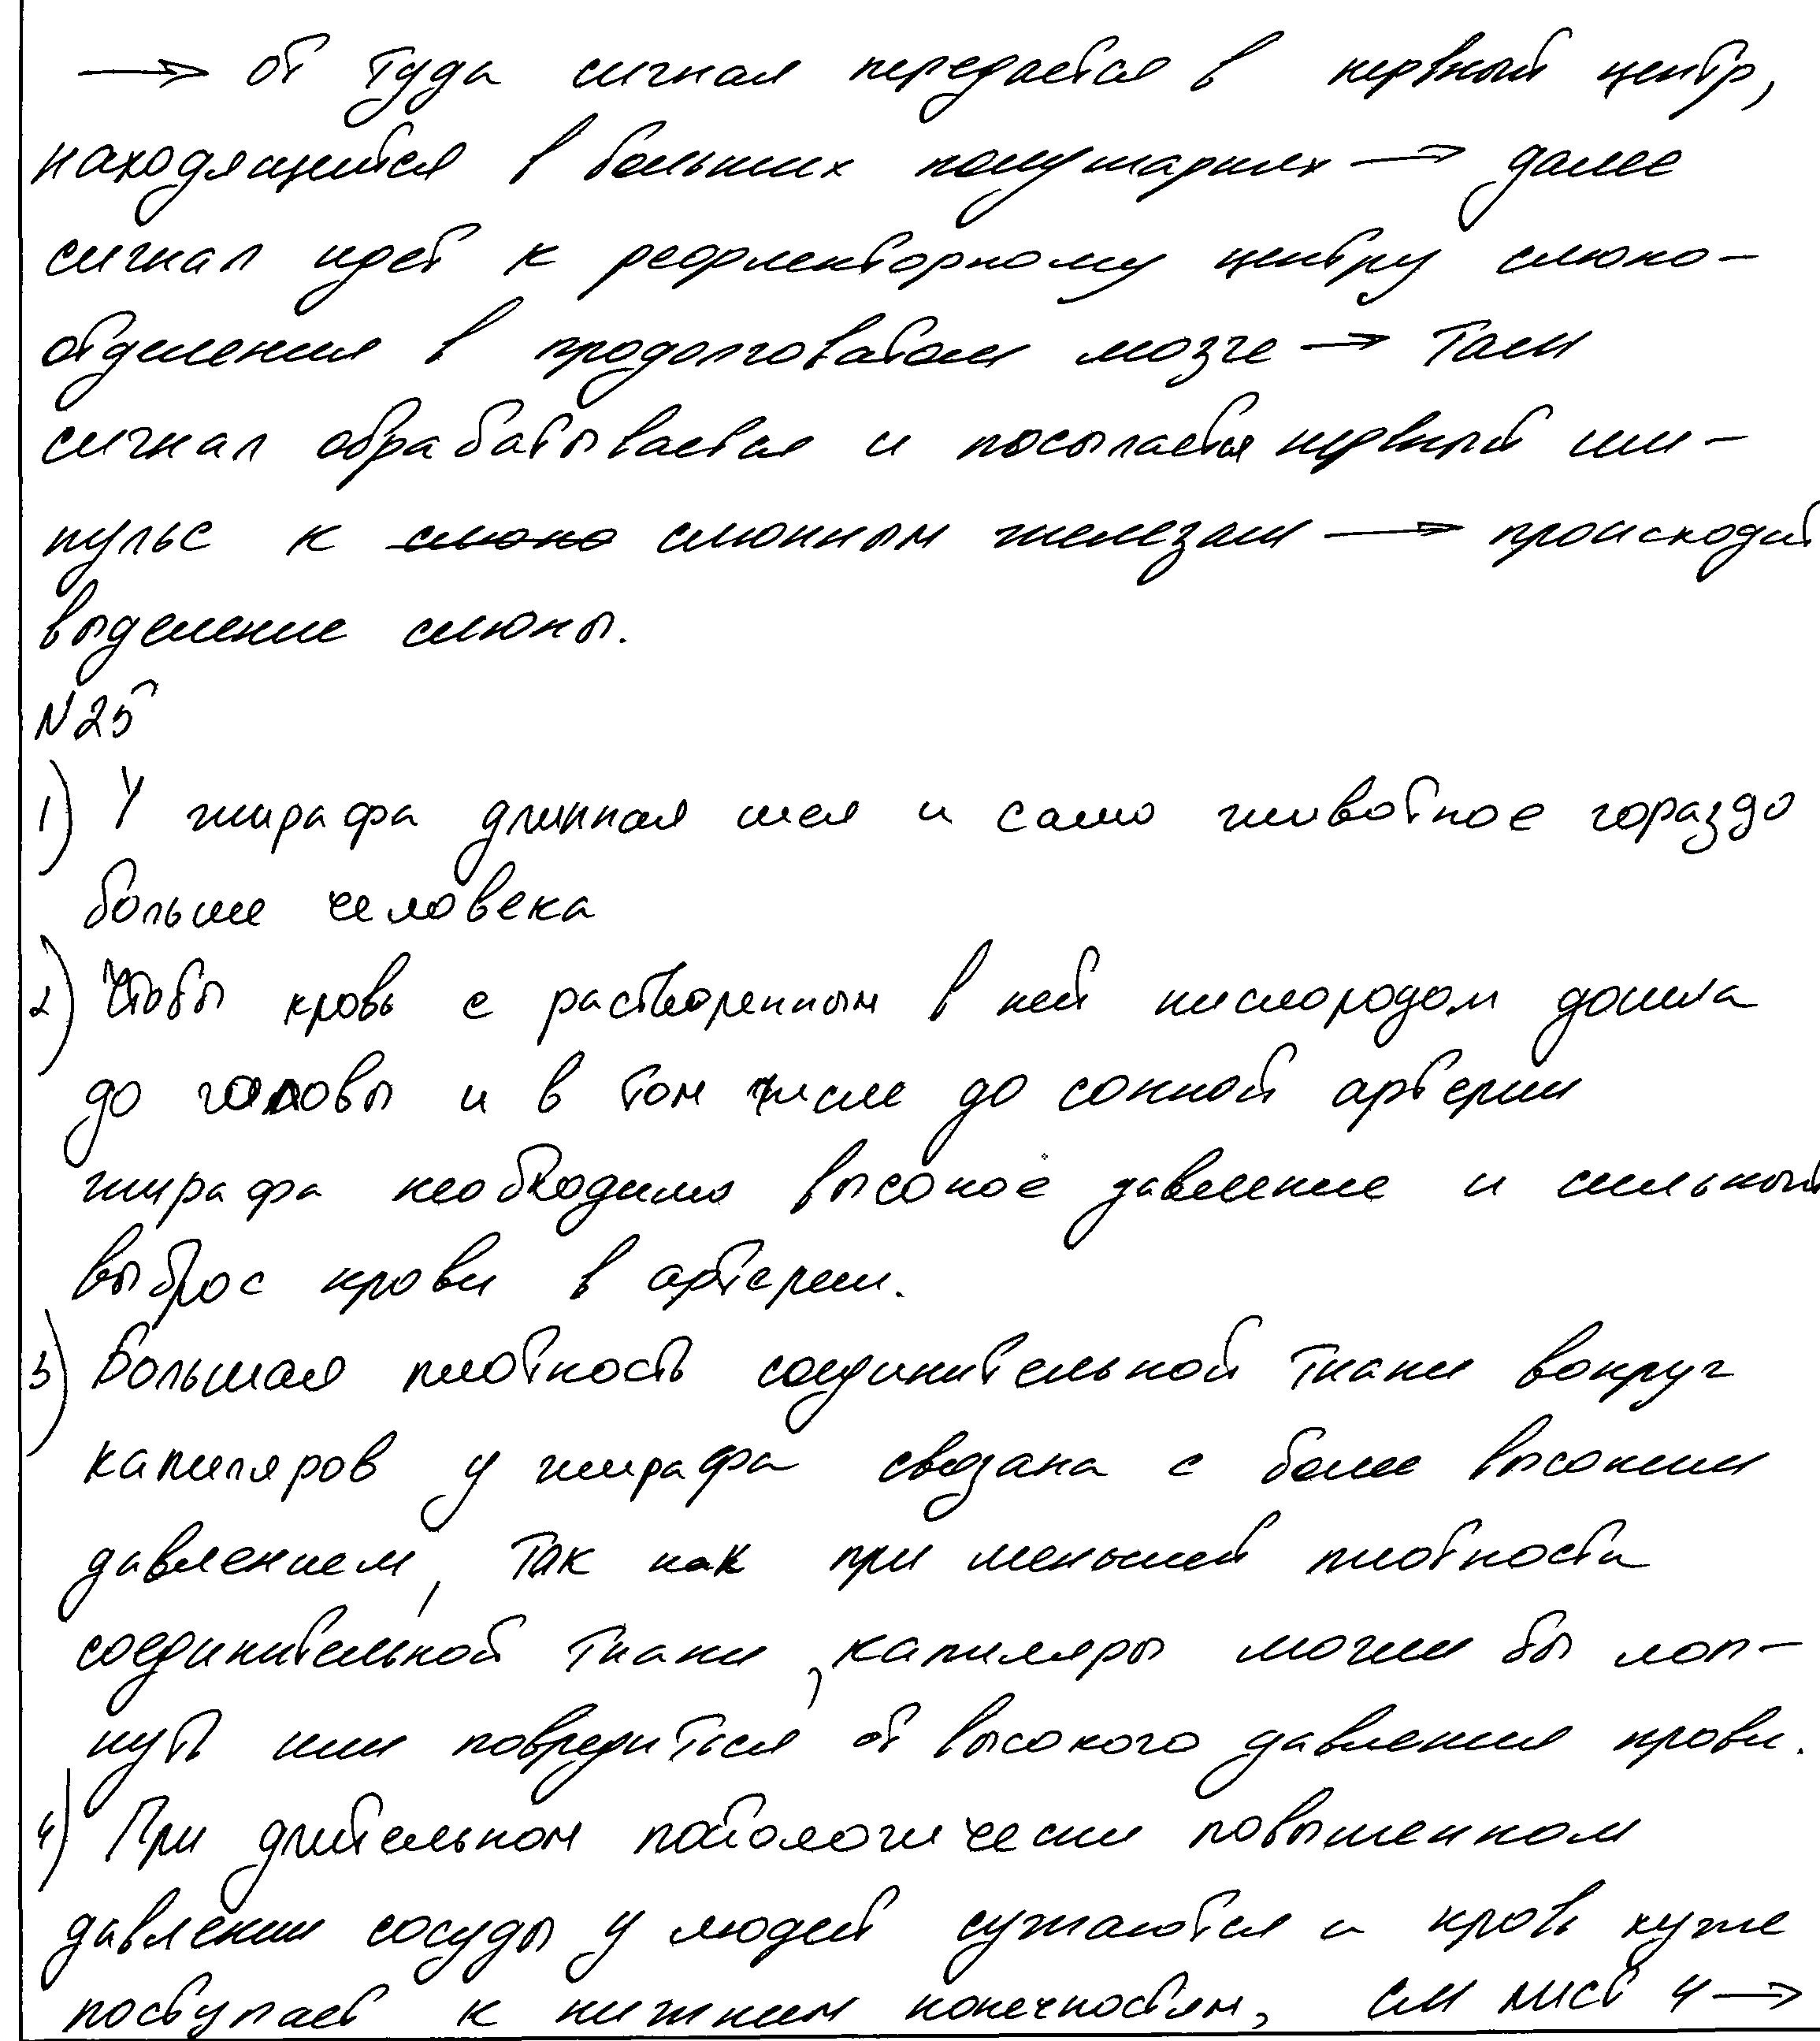 → от туда сигнал передается в нервный центр,
находящийся в больших полушариях → далее
сигнал идет к рефлекторному центру слюно-
отделения в продолговатом мозге → там
сигнал обрабатывается и посылается нервный им-
пульс к слюно слюнным железам → происходит
выделение слюны.
N25
1) У жирафа длинная шея и само животное гораздо
больше человека
2) Чтобы кровь с растворенным в ней кислородом дошла
до головы и в том числе до сонной артерии
жирафа необходимо высокое давление и сильный
выброс крови в артерии.
3) Большая плотность соединительной ткани вокруг
капиляров у жирафа связана с более высоким
давлением, так как при меньшей плотности
соединительной ткани, капиляры могли бы лоп-
нуть или повредиться от высокого давления крови.
4) При длительном патологически повышенном
давлении сосуды у людей сужаются и кровь хуже
поступает к нижним конечностям, см лист 4 →